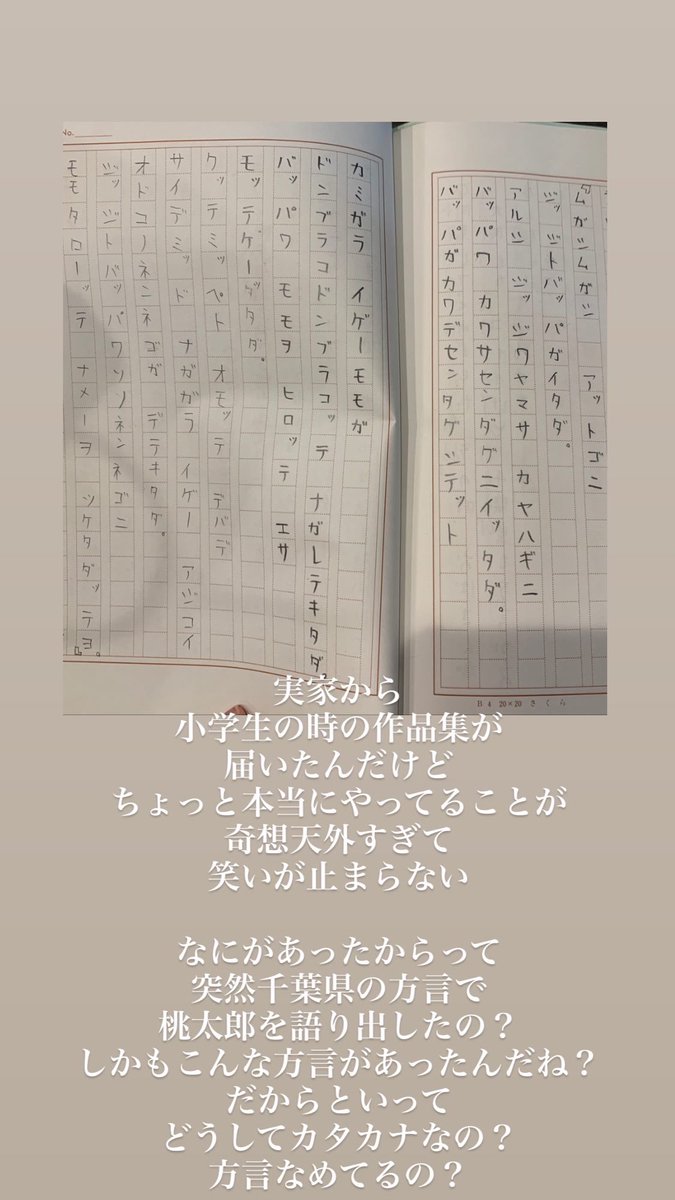 「ムガシムガシ　アットゴニ
ジッジトバッパガイタダ。
アルジ　ジッジワヤマサ　カヤハギニ
バッパワ　カワサセンダグニイッタダ。
バッパガカワデセンタグシテット
B4 20×20 さくら
No.
カミガラ　イゲーモモガ
ドンブラコドンブラコッテ　ナガレテキタダ。
バッパワ　モモヲ　ヒロッテ　エサ
モッテゲーッタダ。
クッテミッペト　オモッテ　デバデ
サイデミッド　ナガガラ　イゲー　アジコイ
オドコノネンネゴガ　デテキタダ。
ジッジトバッパワソノネンネゴニ
モモタローッテ　ナメーヲ　ツケタダッテヨ。」
実家から
小学生の時の作品集が
届いたんだけど
ちょっと本当にやってることが
奇想天外すぎて
笑いが止まらない
なにがあったからって
突然千葉県の方言で
桃太郎を語り出したの？
しかもこんな方言があったんだね？
だからといって
どうしてカタカナなの？
方言なめてるの？